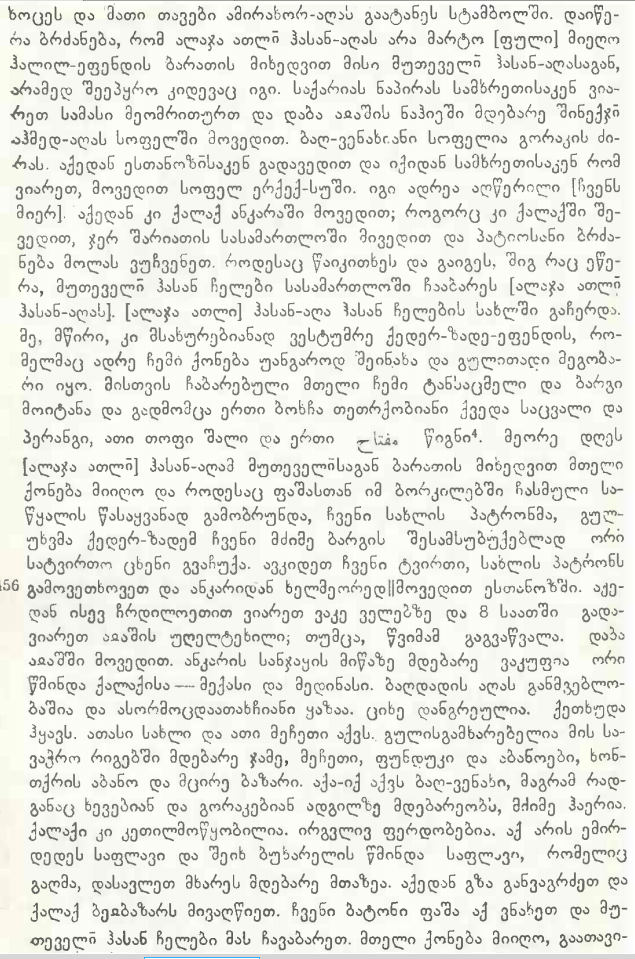 ხოცეს და მათი თავები ამირახორ-აღას გაატანეს სტამბოლში. დაიწე-
რა ბრძანება, რომ ალაჯა ათლჲ ჰასან-აღას არა მარტო [ფული] მიეღო
ჰალილ-ეფენდის ბარათის მიხედვით მისი მუთეველჲ ჰასან-აღასაგან,
არამედ შეეპყრო კიდევაც იგი. საქარიას ნაპირას სამხრეთისაკენ ვია-
რეთ სამასი მეომრითურთ და დაბა აჲაშის ნაჰიეში მდებარე შინექჯი
აჰმედ-აღას სოფელში მოვედით. ბაღ-ვენახიანი სოფელია გორაკის ძი-
რას. აქედან ესთანოზისაკენ გადავედით და იქიდან სამხრეთისაკენ რომ
ვიარეთ, მოვედით სოფელ ერქექ-სუში. იგი ადრეა აღწერილი [ჩვენს
მიერ]. აქედან კი ქალაქ ანკარაში მოვედით; როგორც კი ქალაქში შე-
ვედით, ჯერ შარიათის სასამართლოში მივედით და პატიოსანი ბრძა-
ნება მოლას ვუჩვენეთ. როდესაც წაიკითხეს და გაიგეს, შიგ რაც ეწე-
რა, მუთეველჲ ჰასან ჩელები სასამართლოში ჩააბარეს [ალაჯა ათლჲ
ჰასან-აღას]. [ალაჯა ათლი] ჰასან-აღა ჰასან ჩელების სახლში გაჩერდა.
მე, მწირი, კი მსახურებიანად ვესტუმრე ქედერ-ზადე-ეფენდის, რო-
მელმაც ადრე ჩემი ქონება უანგაროდ შეინახა და გულითადი მეგობა-
რი იყო. მისთვის ჩაბარებული მთელი ჩემი ტანსაცმელი და ბარგი
მოიტანა და გადმომცა ერთი ბოხჩა თეთრქობიანი ქვედა საცვალი და
პერანგი, ათი თოფი შალი და ერთი مفتاح წიგნი⁴. მეორე დღეს
[ალაჯა ათლჲ] ჰასან-აღამ მუთეველისაგან ბარათის მიხედვით მთელი
ქონება მიიღო და როდესაც ფაშასთან იმ ბორკილებში ჩასმული სა-
წყალის წასაყვანად გამობრუნდა, ჩვენი სახლის პატრონმა, გულ-
უხვმა ქედერ-ზადემ ჩვენი მძიმე ბარგის შესამსუბუქებლად ორი
სატვირთო ცხენი გვაჩუქა. ავკიდეთ ჩვენი ტვირთი, სახლის პატრონს
456 გამოვეთხოვეთ და ანკარიდან ხელმეორედ||მოვედით ესთანოზში. აქე-
დან ისევ ჩრდილოეთით ვიარეთ ვაკე ველებზე და 8 საათში გადა-
ვიარეთ აჲაშის უღელტეხილი; თუმცა, წვიმამ გაგვაწვალა. დაბა
აჲაშში მოვედით. ანკარის სანჯაყის მიწაზე მდებარე ვაკუფია ორი
წმინდა ქალაქისა — მექასი და მედინასი. ბაღდადის აღას განმგებლო-
ბაშია და ასორმოცდაათახჩიანი ყაზაა. ციხე დანგრეულია. ქეთხუდა
ჰყავს. ათასი სახლი და ათი მეჩეთი აქვს. გულისგამხარებელია მის სა-
ვაჭრო რიგებში მდებარე ჯამე, მეჩეთი, ფუნდუკი და აბანოები, ხონ-
თქრის აბანო და მცირე ბაზარი. აქა-იქ აქვს ბაღ-ვენახი, მაგრამ რად-
განაც ხევებიან და გორაკებიან ადგილზე მდებარეობს, მძიმე ჰაერია.
ქალაქი კი კეთილმოწყობილია. ირგვლივ ფერდობებია. აქ არის ემირ-
დედეს საფლავი და შეიხ ბუხარელის წმინდა საფლავი, რომელიც
გაღმა, დასავლეთ მხარეს მდებარე მთაზეა. აქედან გზა განვაგრძეთ და
ქალაქ ბეჲბაზარს მივაღწიეთ. ჩვენი ბატონი ფაშა აქ ვნახეთ და მუ-
თეველჲ ჰასან ჩელები მას ჩავაბარეთ. მთელი ქონება მიიღო, გაათავი-